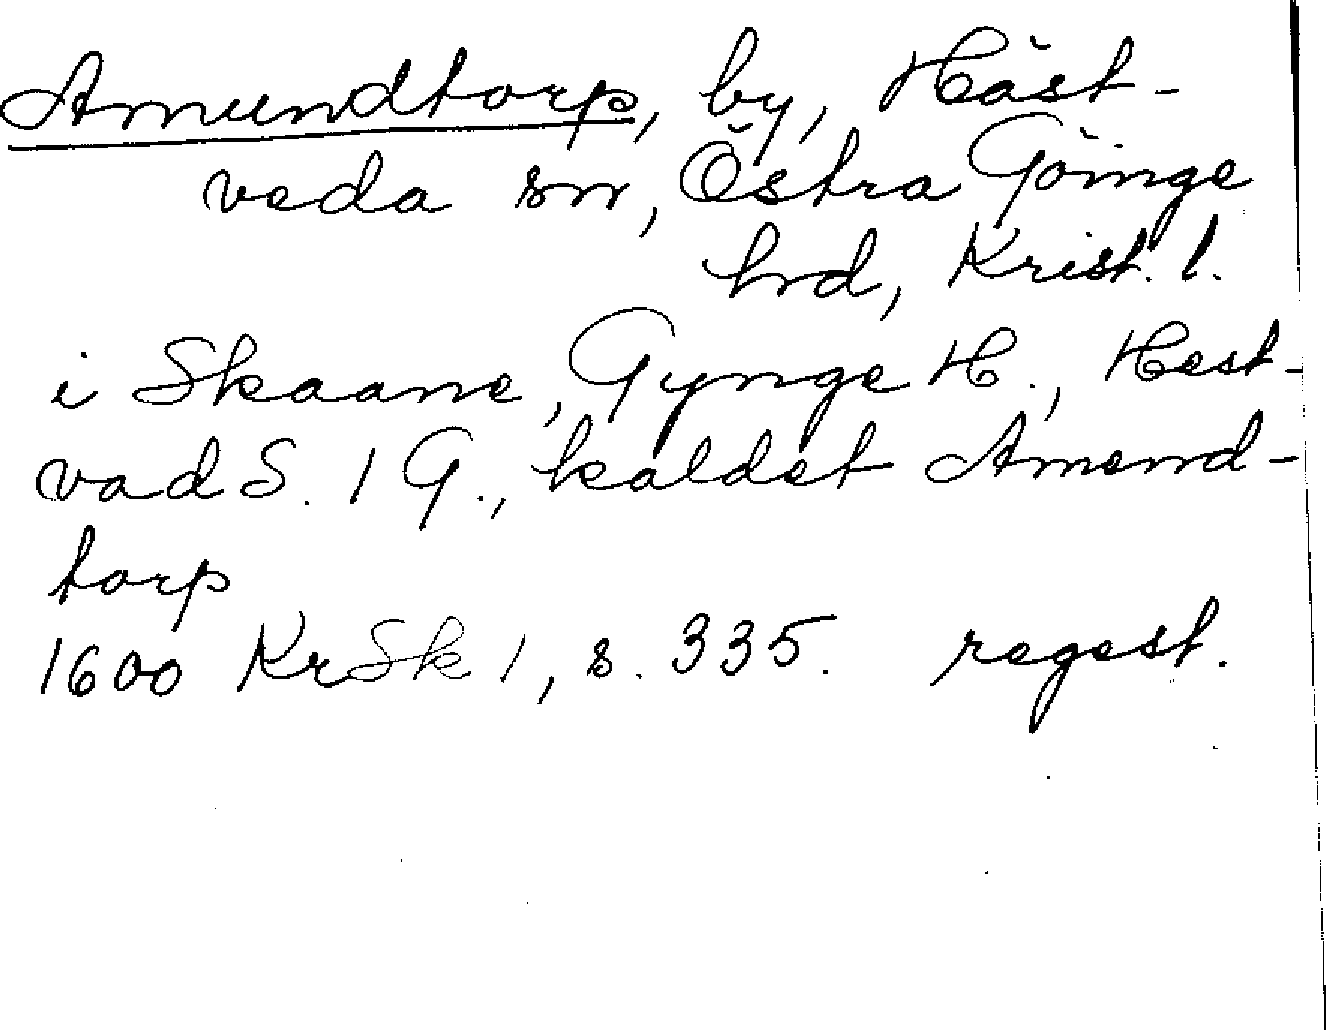 Amundtorp, by, Häst-
veda sn, Östra Göinge
hd, Krist. l.
i Skaane, Gynge H., Hest-
vad S. 1 G., kaldet Amend-
torp
1600 KrSk 1, s. 335. regest.